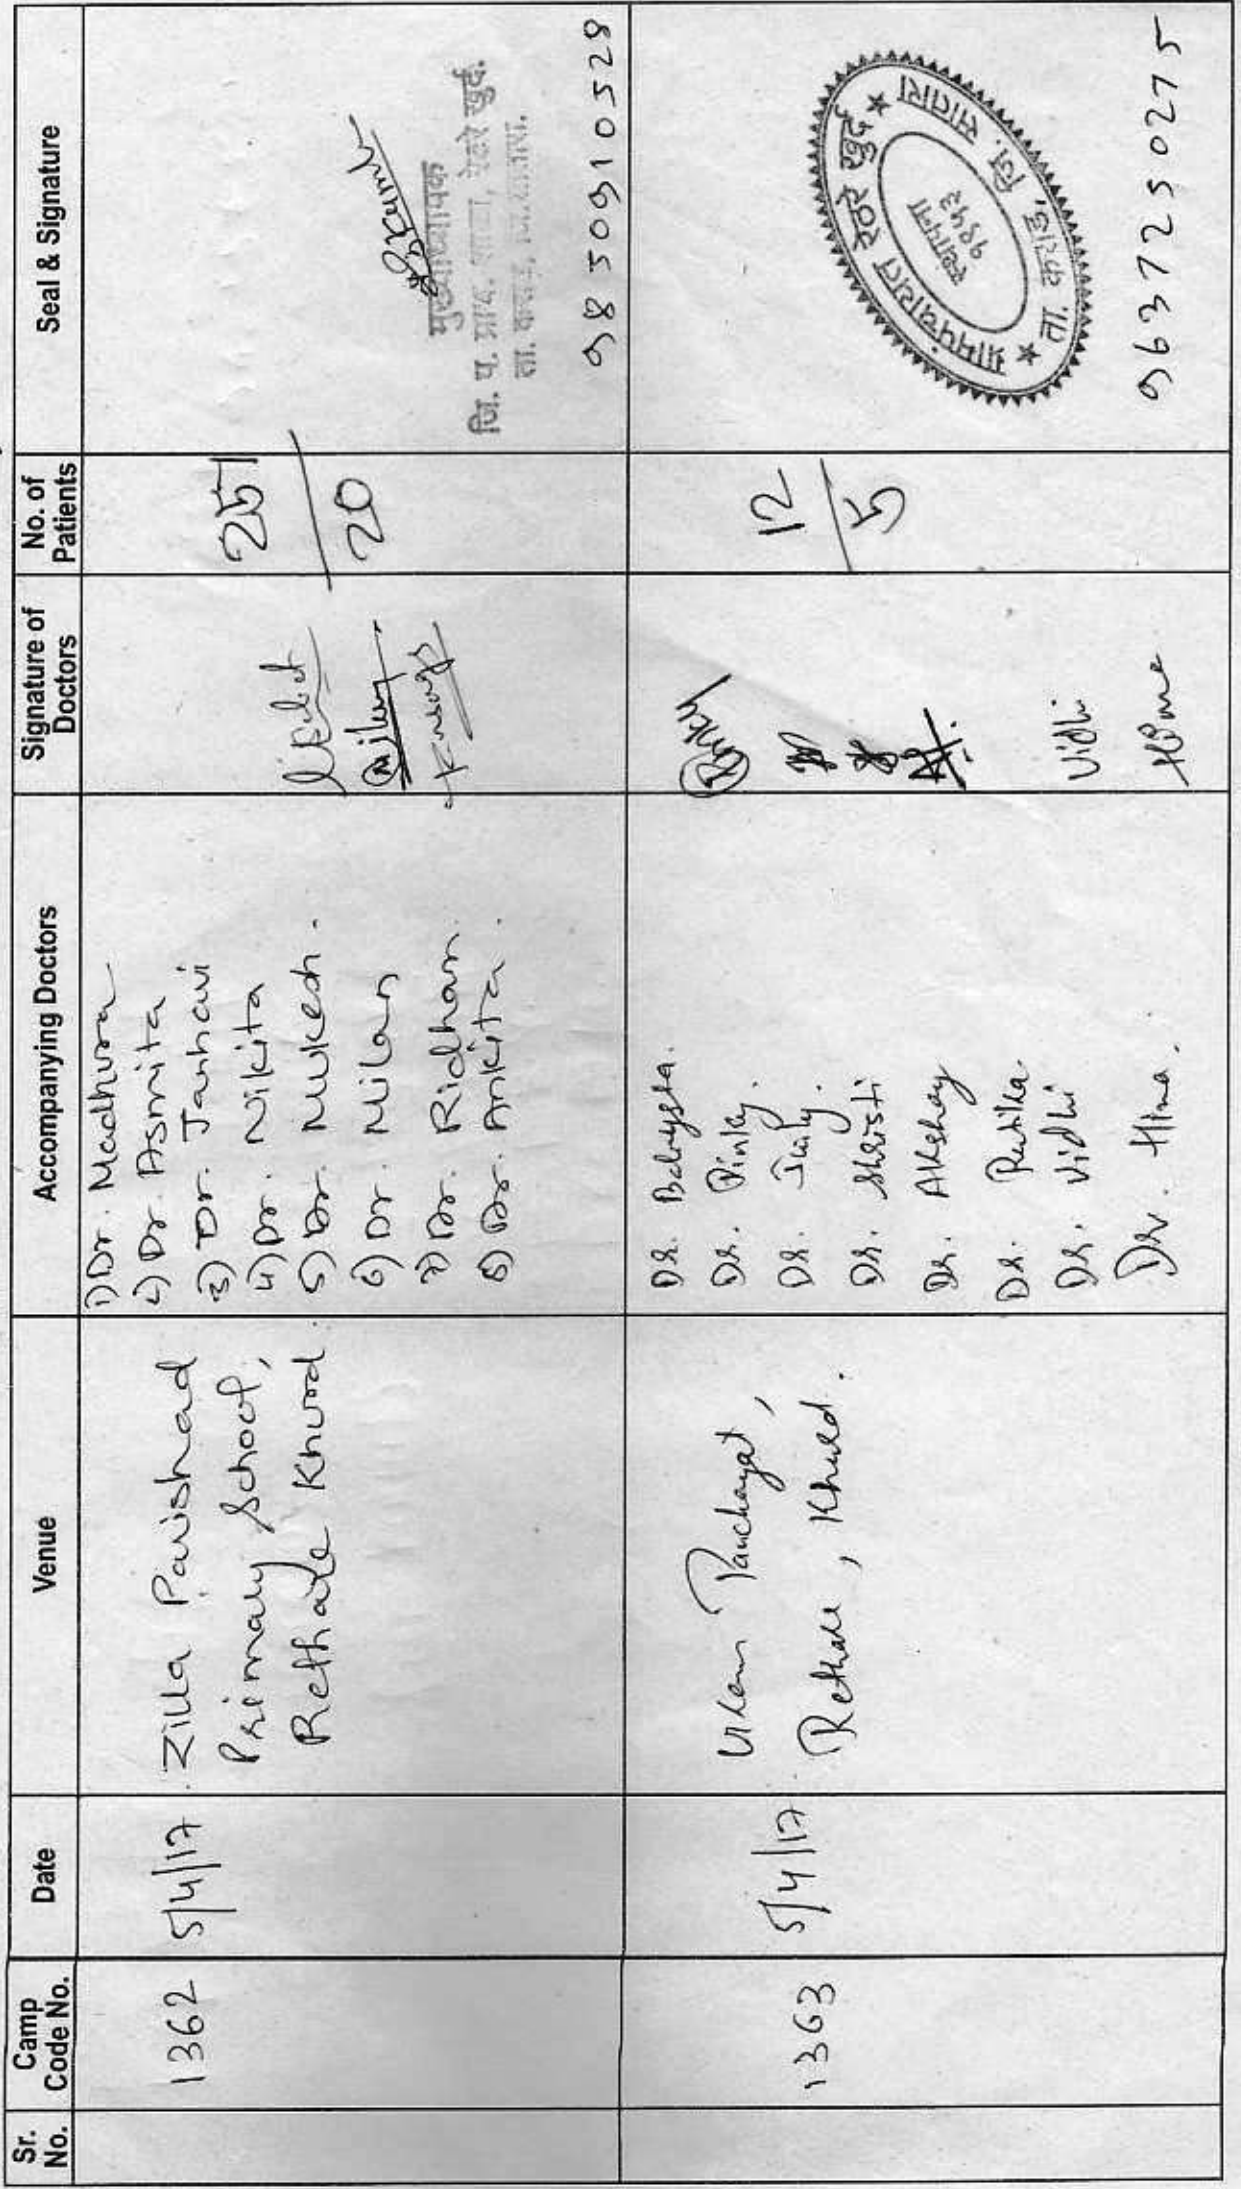 Sr. No.
Camp Code No.
Date
Venue
Accompanying Doctors
Signature of Doctors
No. of Patients
Seal & Signature
1362
5/4/17
Zilla Parishad
Primary School,
Rethare Khurd.
1) Dr. Madhura
2) Dr. Asmita
3) Dr. Janhavi
4) Dr. Nikita
5) Dr. Mukesh.
6) Dr. Milan
7) Dr. Ridham.
8) Dr. Ankita.
20
मुख्याध्यापक
जि. प. प्राथ. शाळा, रेठरे खुर्द.
ता. कराड,
9850910529
1363
5/4/17
Panchayat,
Rethare, Khurd.
Dr.
Dr. Pinky.
Dr.
Dr. Shristi
Dr. Akshay
Dr. Rutika
Dr. Vidhi
Dr. Hina.
Pinky
Vidhi
12
5
ग्रामपंचायत रेठरे खुर्द
ता. कराड, जि. सातारा
स्थापना
१९४३
9637250275